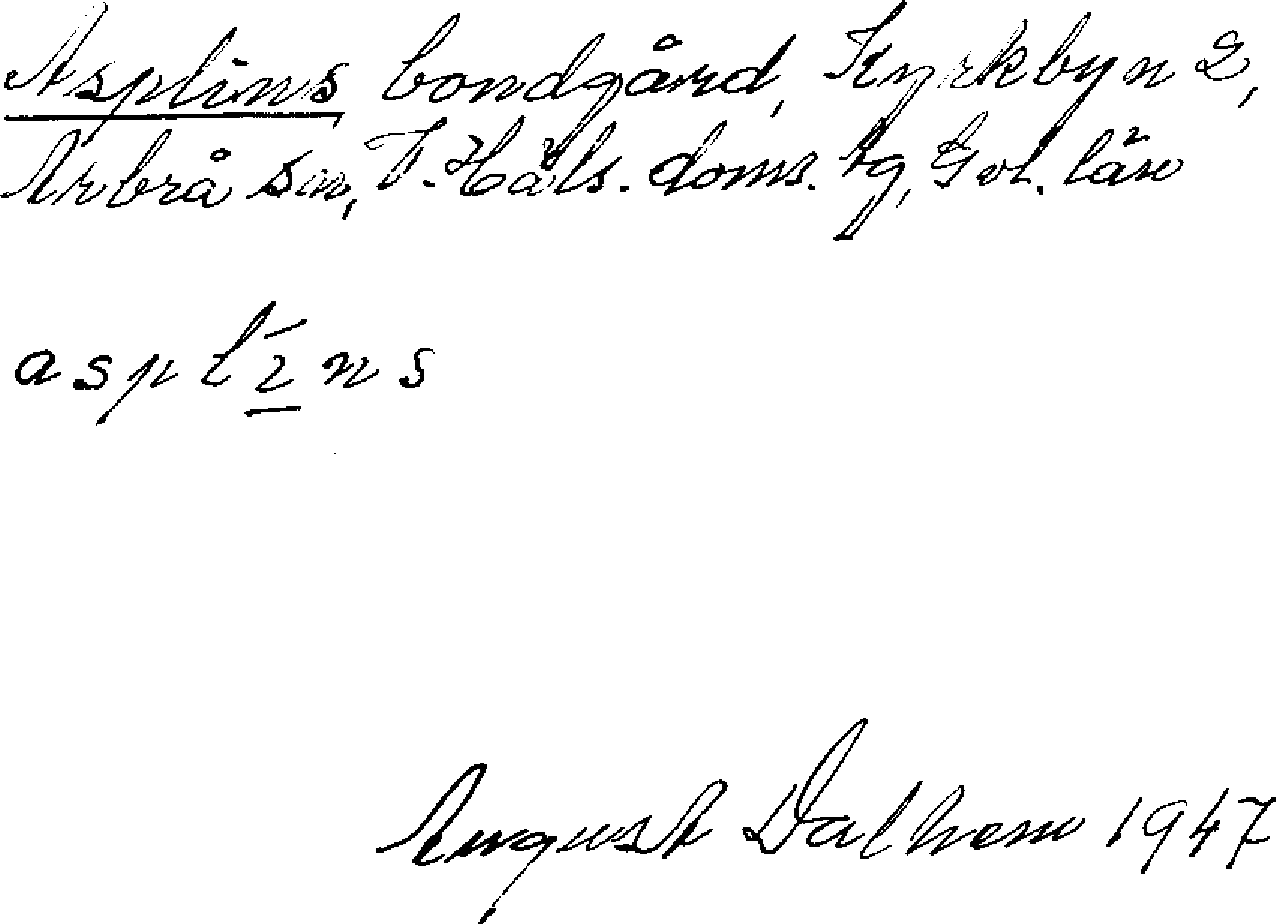 Asplins bondgård, Kyrkbyn 2,
Arbrå sn, V. Häls. doms. tg, Gvl. län
asplíns
August Dalhem 1947